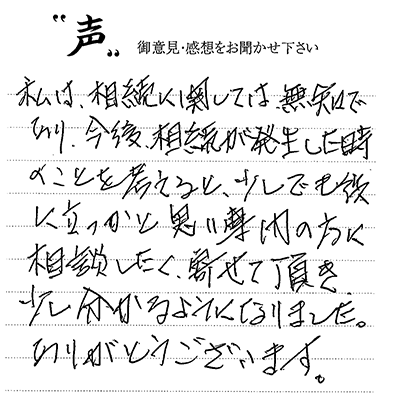 "声" 御意見・感想をお聞かせ下さい
私は、相続に関しては、無知で
あり、今後、相続が発生した時
のことを考えると、少しでも役
に立つかと思い専門の方に
相談したく、寄せて頂き、
少し分かるようになりました。
ありがとうございます。